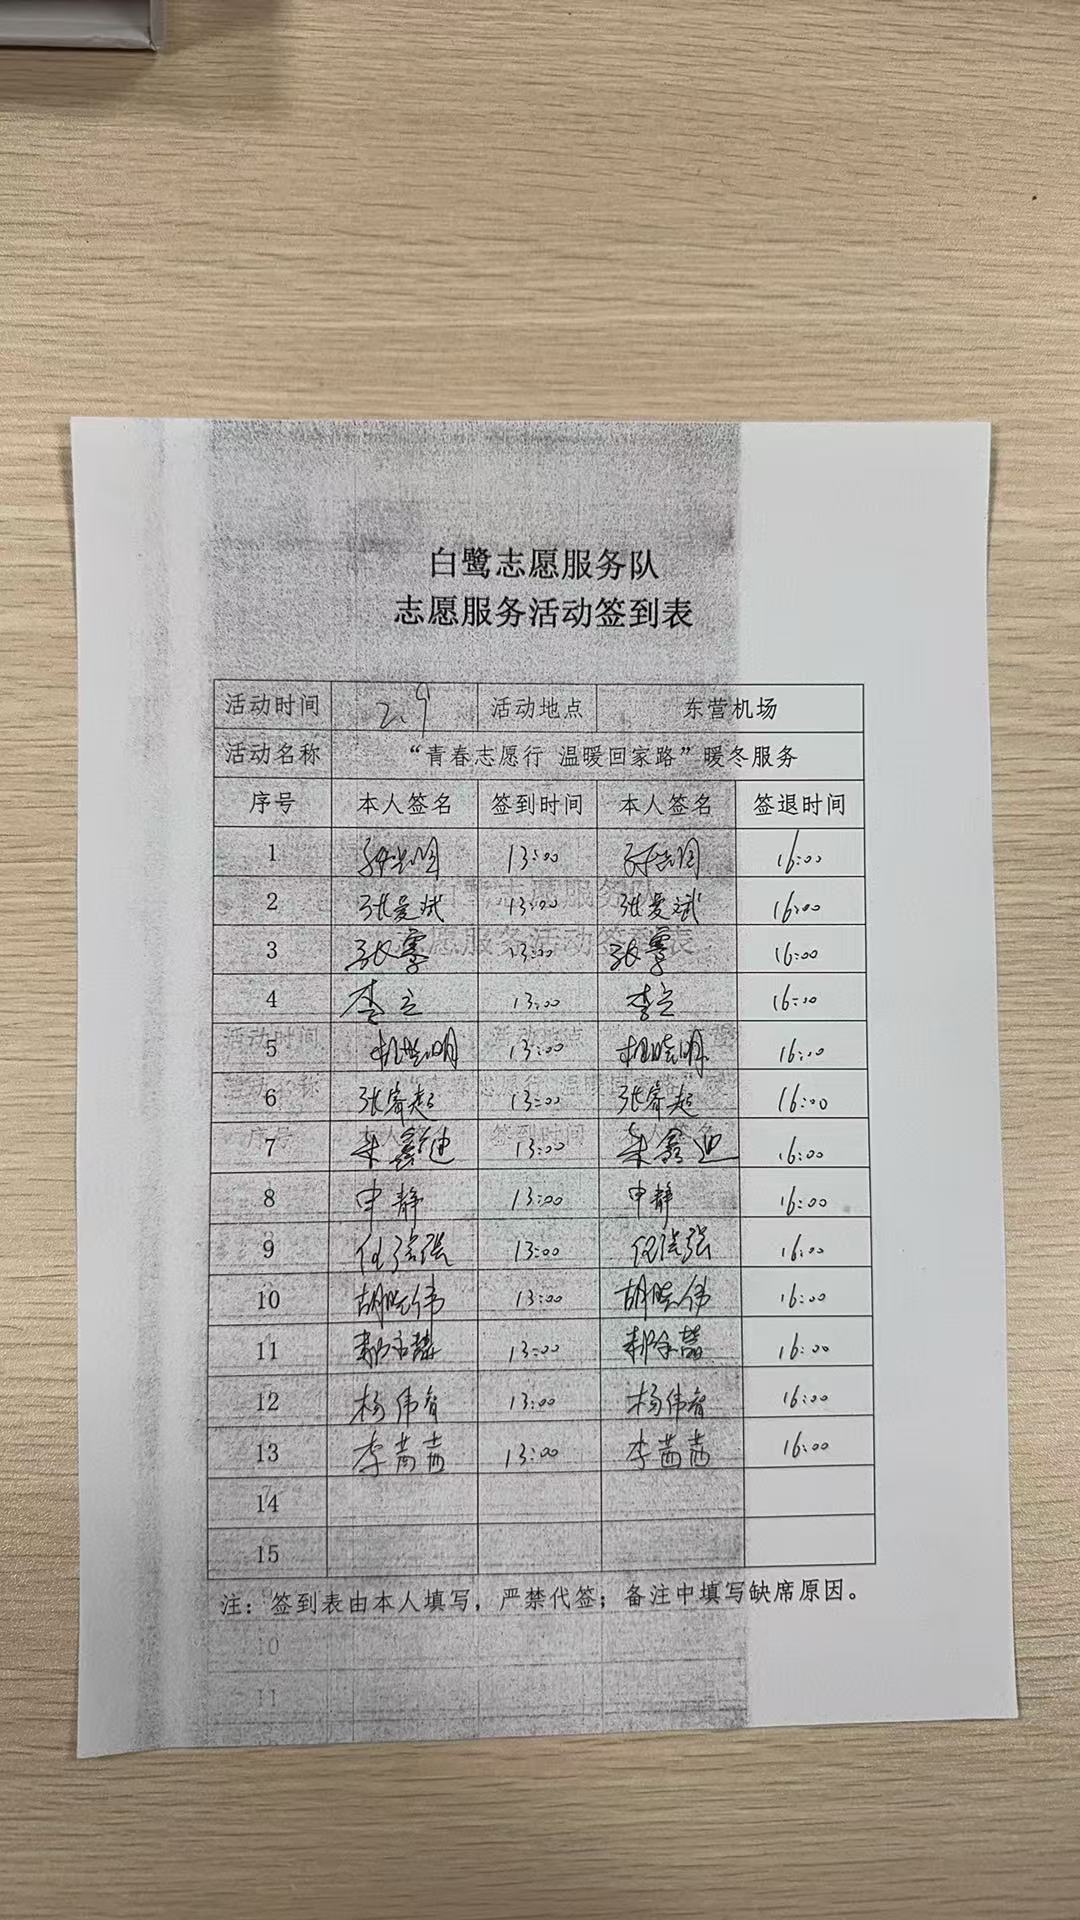 白鹭志愿服务队
志愿服务活动签到表
活动时间 2.9 活动地点 东营机场
活动名称 “青春志愿行 温暖回家路”暖冬服务
序号 本人签名 签到时间 本人签名 签退时间
1 13:00 16:00
2 张爱斌 13:00 张爱斌 16:00
3 张霽 13:00 张霽 16:00
4 李立 13:00 李立 16:00
5 杜晓明 13:00 杜晓明 16:00
6 张睿超 13:00 张睿超 16:00
7 朱鑫迪 13:00 朱鑫迪 16:00
8 申静 13:00 申静 16:00
9 13:00 16:00
10 胡晓伟 13:00 胡晓伟 16:00
11 13:00 16:00
12 杨伟智 13:00 杨伟智 16:00
13 李茜茜 13:00 李茜茜 16:00
14
15
注：签到表由本人填写，严禁代签；备注中填写缺席原因。
10
11